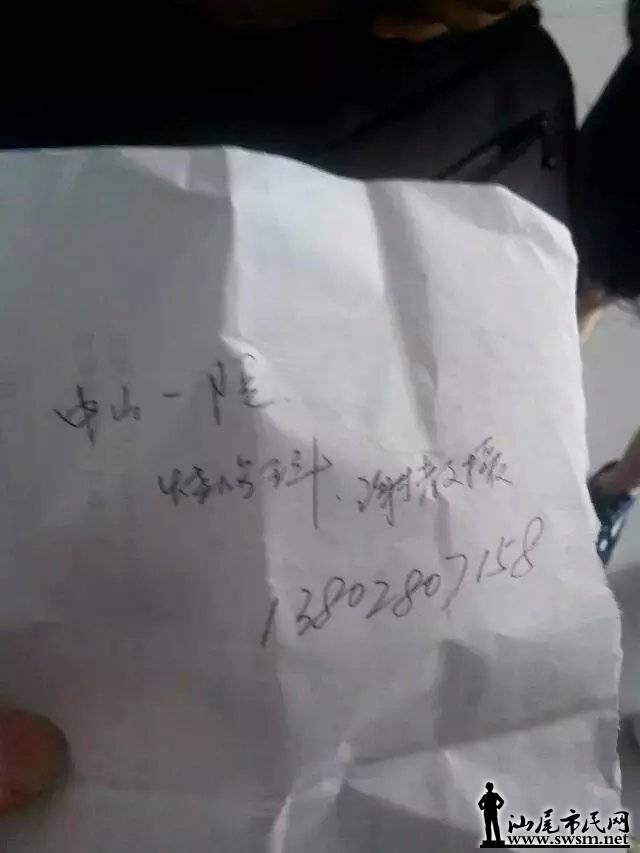 中山一院.
烧伤科.谢教授
13802807158
汕尾市民网
www.swsm.net